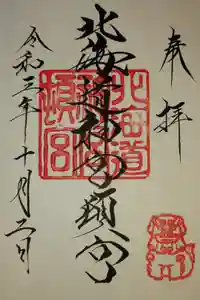 奉拝
北海道神宮頓宮
北海道神宮頓宮
令和三年十月三日